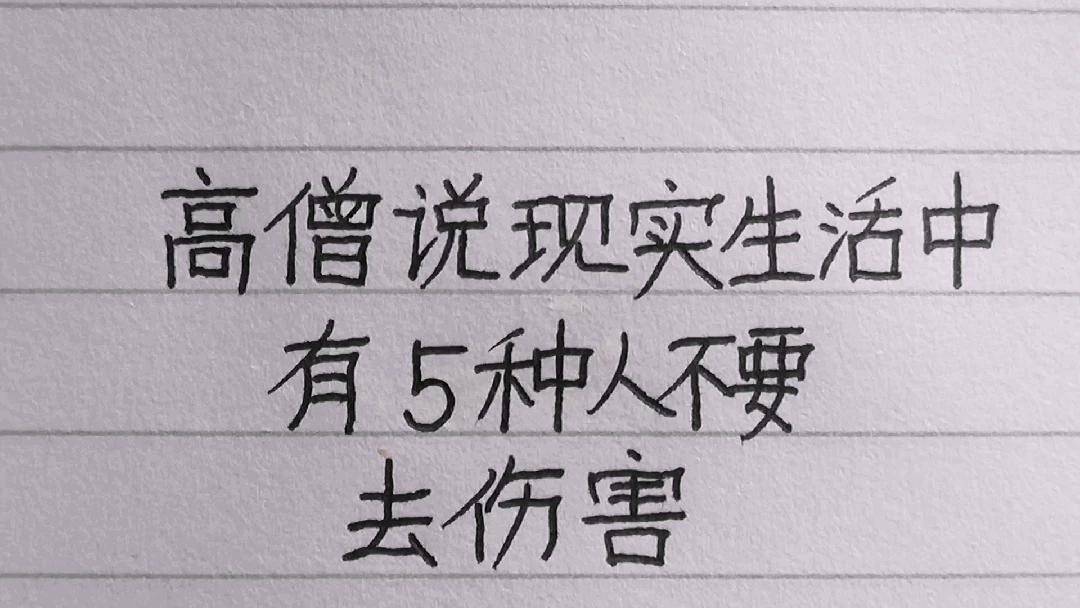 高僧说现实生活中
有5种人不要
去伤害